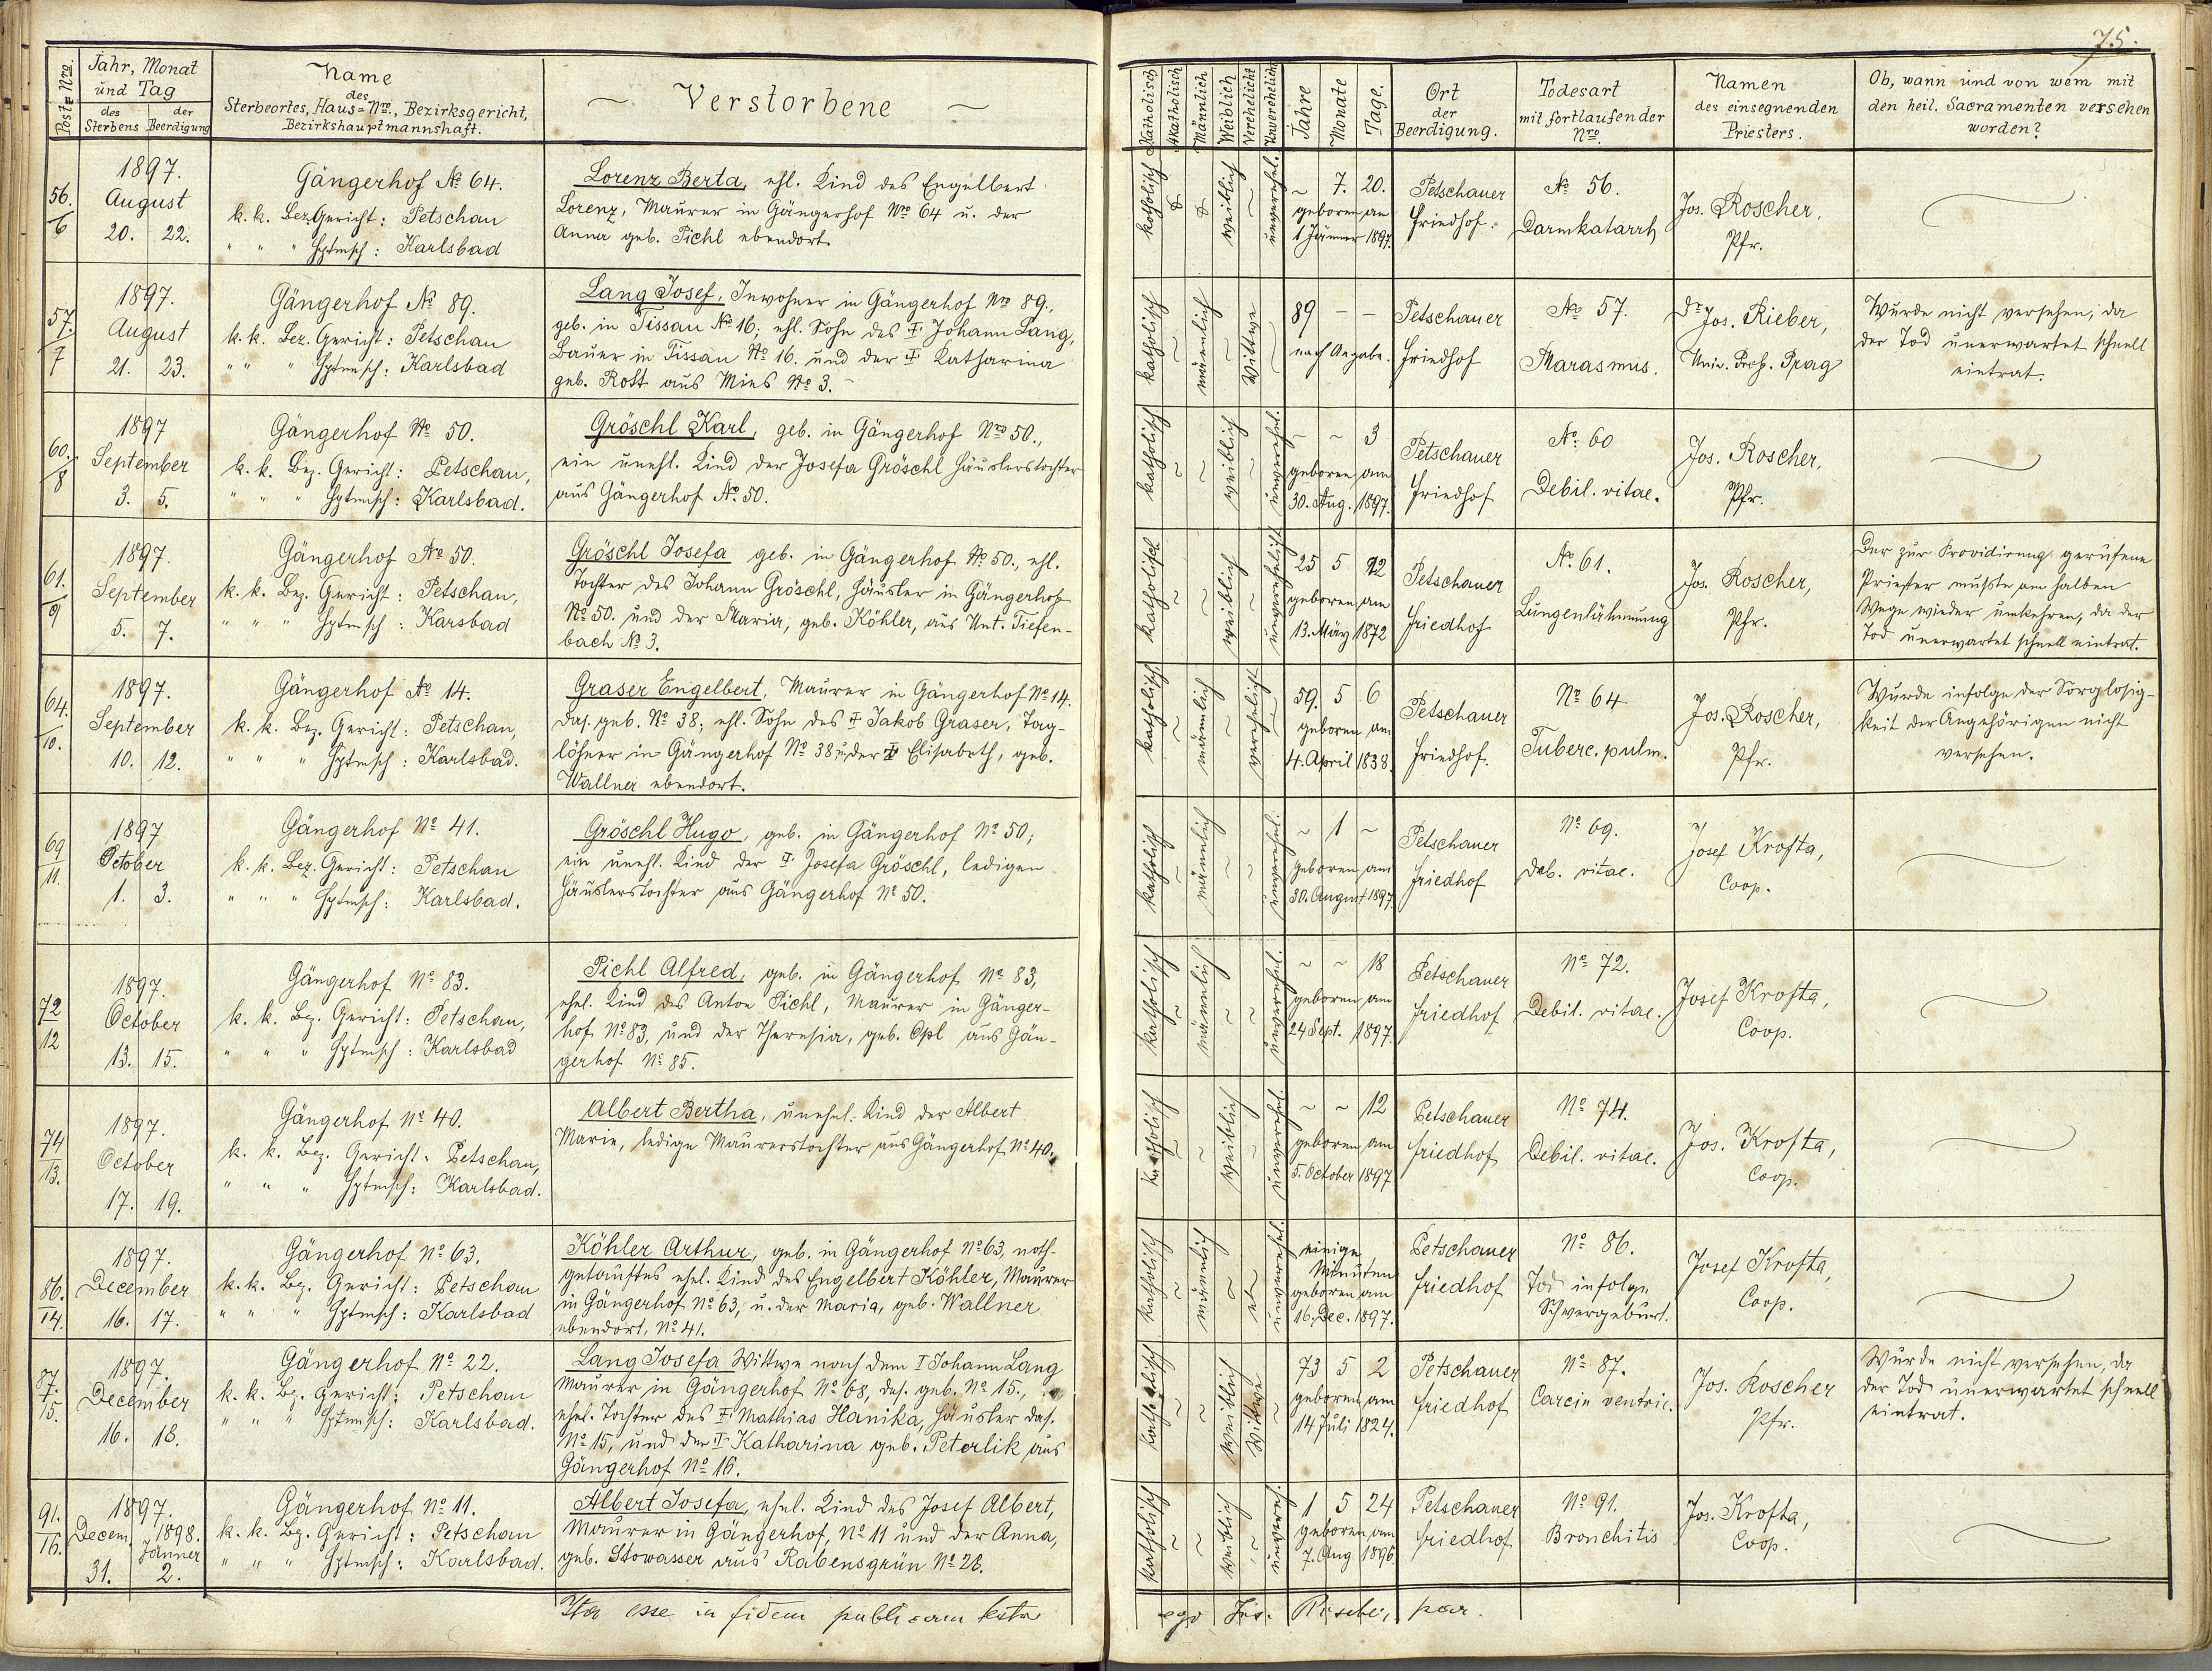 75.
Post-Nro.
Jahr, Monat
und Tag
des
Sterbens
der
Beerdigung
Name
des
Sterbeortes, Haus-Nro., Bezirksgericht,
Bezirkshauptmannshaft.
Verstorbene
Katholisch
Akatholisch
Männlich
Weiblich
Verehelicht
Unverehelicht
Jahre
Monate
Tage.
Ort
der
Beerdigung.
Todesart
mit fortlaufender
Nro.
Namen
des einsegnenden
Priesters.
Ob, wann und von wem mit
den heil. Sacramenten versehen
worden?
56.
6
1897.
August
20. 22.
Gängerhof No 64.
k. k. Bez. Gericht: Petschau
" " " Hptmsch: Karlsbad
Lorenz Berta, ehl. Kind des Engelbert
Lorenz, Maurer in Gängerhof Nro 64 u. der
Anna geb. Pichl ebendort.
katholisch
weiblich
unverehel.
~ 7. 20.
geboren am
1 Jänner 1897.
Petschauer
Friedhof.
No 56.
Darmkatarrh
Jos. Roscher,
Pfr.
57.
7
1897.
August
21. 23.
Gängerhof No 89.
k. k. Bez. Gericht: Petschau
" " " Hptmsch: Karlsbad
Lang Josef, Inwohner in Gängerhof Nro 89.,
geb. in Tissau No 16; ehl. Sohn des † Johann Lang,
Bauer in Tissau No 16. und der † Katharina
geb. Rott aus Mies No 3.
katholisch
männlich
Wittwe
89 - -
nach Angabe.
Petschauer
Friedhof
No 57.
Marasmus.
Dr Jos. Rieber,
Univ. Prof. Prag
Wurde nicht versehen, da
der Tod unerwartet schnell
eintrat.
60.
8
1897
September
3. 5.
Gängerhof No 50.
k. k. Bez. Gericht: Petschau,
" " " Hptmsch: Karlsbad.
Gröschl Karl, geb. in Gängerhof Nro 50.,
ein unehl. Kind der Josefa Gröschl Häuslerstochter
aus Gängerhof No 50.
katholisch
weiblich
unverehel.
- ~ 3
geboren am
30. Aug. 1897.
Petschauer
Friedhof
No: 60
Debil. vitae.
Jos. Roscher,
Pfr.
61.
9
1897.
September
5. 7.
Gängerhof No 50.
k. k. Bez. Gericht: Petschau,
" " " Hptmsch: Karsbad
Gröschl Josefa geb. in Gängerhof No 50., ehl.
Tochter des Johann Gröschl, Häusler in Gängerhof
No 50. und der Maria, geb. Köhler, aus Unt. Tiefen-
bach No 3.
katholisch
weiblich
unverehelicht
25 5 22
geboren am
13. März 1872
Petschauer
Friedhof
No 61.
Lungenlähmung
Jos. Roscher,
Pfr.
Der zur Providirung gerufene
Priester mußte am halben
Wege wieder umkehren, da der
Tod unerwartet schnell eintrat.
64.
10.
1897.
September
10. 12.
Gängerhof No 14.
k. k. Bez. Gericht: Petschau,
" " " Hptmsch: Karlsbad.
Graser Engelbert, Maurer in Gängerhof No 14.
das. geb. No 38; ehl. Sohn des † Jakob Graser, Tag-
löhner in Gängerhof No 38 u. der † Elisabeth, geb.
Wallner ebendort.
katholisch
männlich
verehelicht
59. 5 6
geboren am
4. April 1838.
Petschauer
Friedhof.
No 64
Tuberc. pulm.
Jos. Roscher,
Pfr.
Wurde infolge der Sorglosig-
keit der Angehörigen nicht
versehen.
69
11.
1897
October
1. 3.
Gängerhof No 41.
k. k. Bez. Gericht: Petschau
" " " Hptmsch: Karlsbad.
Gröschl Hugo, geb. in Gängerhof No 50;
ein unehl. Kind der † Josefa Gröschl, ledigen
Häuslerstochter aus Gängerhof No 50.
katholisch
männlich
unverehel.
~ 1 ~
geboren am
30. August 1897.
Petschauer
Friedhof
No 69.
Deb. vitae.
Josef Krofta,
Coop.
72
12
1897.
October
13. 15.
Gängerhof No 83.
k. k. Bez. Gericht: Petschau,
" " " Hptmsch: Karlsbad
Pichl Alfred, geb. in Gängerhof No 83,
ehel. Kind des Anton Pichl, Maurer in Gänger-
hof No 83, und der Theresia, geb. Opl aus Gän-
gerhof No 85.
katholisch
männlich
unverehel.
~ ~ 18
geboren am
24 Sept. 1897.
Petschauer
Friedhof
No 72.
Debil. vitae.
Josef Krofta,
Coop.
74
13.
1897.
October
17. 19.
Gängerhof No 40.
k. k. Bez. Gericht: Petschau,
" " " Hptmsch: Karlsbad.
Albert Bertha, unehel. Kind der Albert
Marie, ledige Maurerstochter aus Gängerhof No 40.
katholisch
weiblich
unverehel.
~ ~ 12
geboren am
5. October 1897
Petschauer
Friedhof
No 74.
Debil. vitae.
Jos. Krofta,
Coop.
86.
14.
1897.
December
16. 17.
Gängerhof No 63.
k. k. Bez. Gericht: Petschau
" " " Hptmsch: Karlsbad
Köhler Arthur, geb. in Gängerhof No 63, noth-
getauftes ehel. Kind des Engelbert Köhler, Maurer
in Gängerhof No 63, u. der Maria, geb. Wallner
ebendort, No 41.
katholisch
männlich
unverehel.
einige
Minuten
geboren am
16. Dec. 1897.
Petschauer
Friedhof
No 86.
Tod infolge
Schwergeburt.
Josef Krofta,
Coop.
87.
15.
1897.
December
16. 18.
Gängerhof No 22.
k. k. Bez. Gericht: Petschau
" " " Hptmsch: Karlsbad.
Lang Josefa Wittwe nach dem † Johann Lang
Maurer in Gängerhof No 68, das. geb. No 15.,
ehel. Tochter des † Mathias Hanika, Häusler das.
No 15, und der † Katharina geb. Peterlik aus
Gängerhof No 16.
katholisch
weiblich
Witwe
73 5 2
geboren am
14 Juli 1824.
Petschauer
Friedhof
No 87.
Carcin ventric.
Jos. Roscher
Pfr.
Wurde nicht versehen, da
der Tod unerwartet schnell
eintrat.
91.
16.
1897.
Decem. 1898.
Jänner
31. 2.
Gängerhof No 11.
k. k. Bez. Gericht: Petschau
" " " Hptmsch: Karlsbad.
Albert Josefa, ehel. Kind des Josef Albert,
Maurer in Gängerhof, No 11 und der Anna,
geb. Stowasser aus Rabensgrün No 28.
katholisch
weiblich
unvereh.
1 5 24
geboren am
7. Aug 1896.
Petschauer
Friedhof
No 91.
Bronchitis
Jos. Krofta,
Coop.
Ita esse in fidem publicam testor
ego Jos. par.